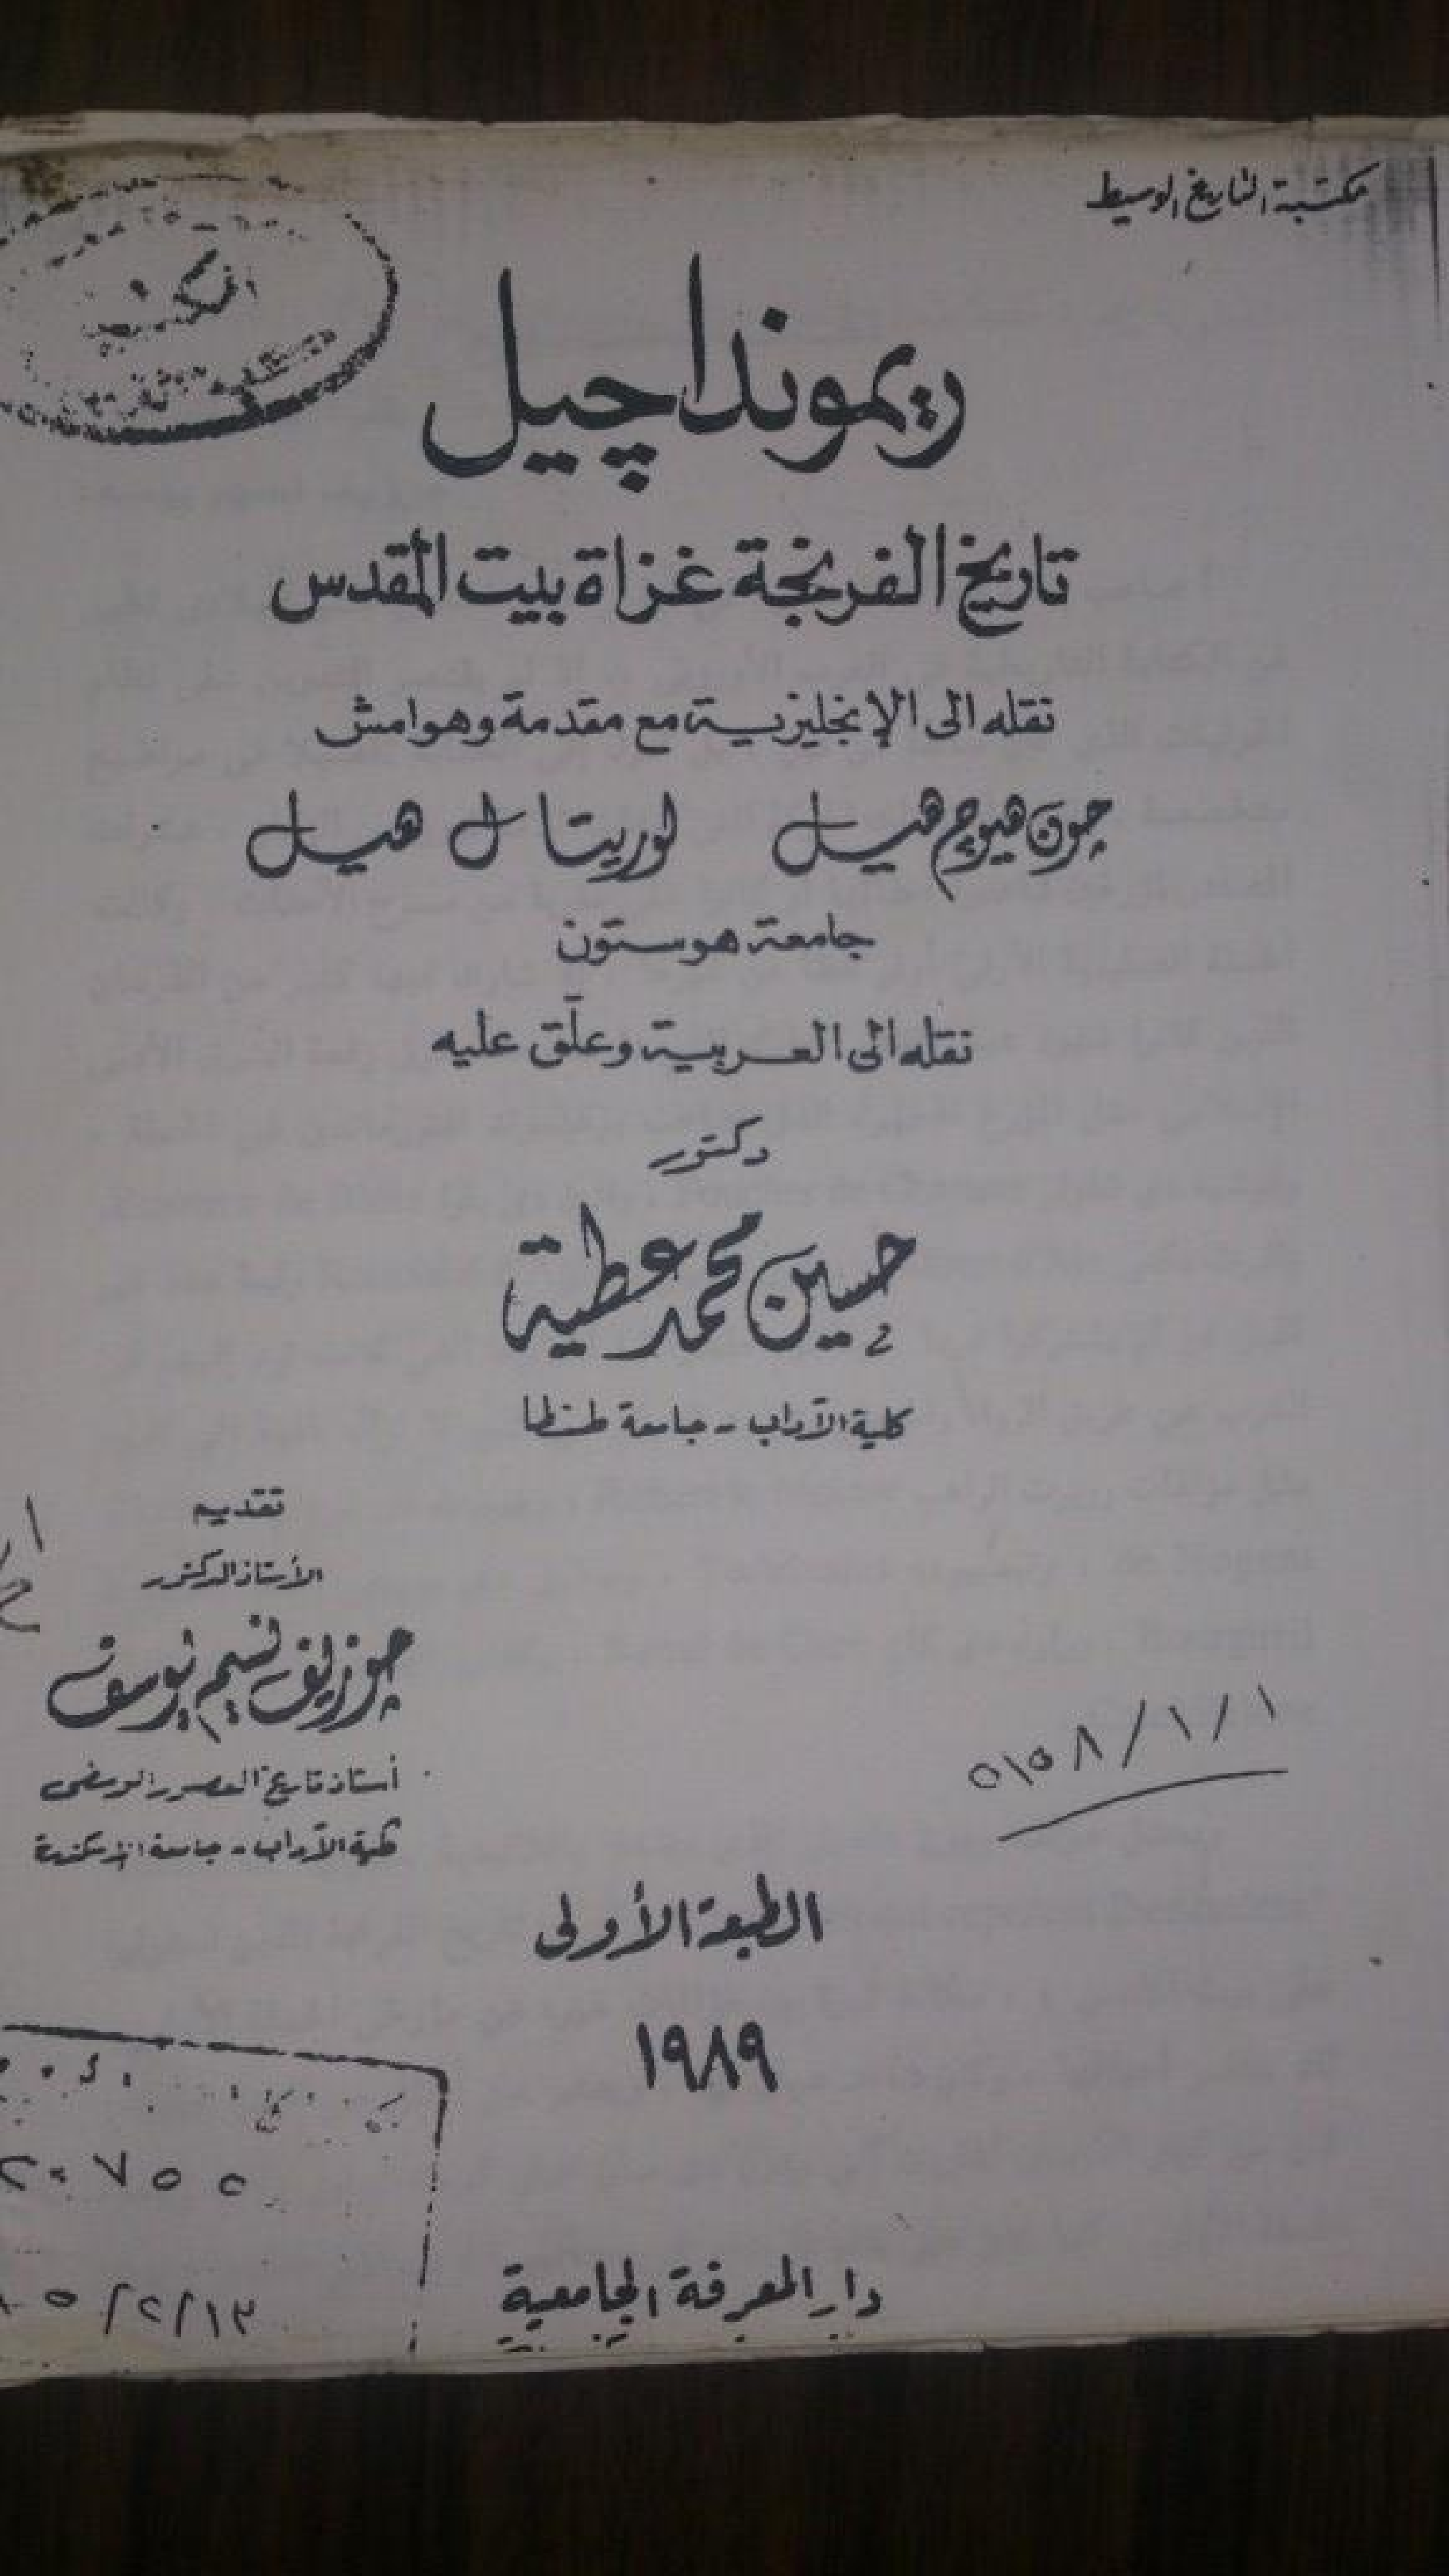 مكتبة التاريخ الوسيط
ريمونداچيل
تاريخ الفرنجة غزاة بيت المقدس
نقله الى الإنجليزية مع مقدمة وهوامش
چون هيوج هيل لوريتا ل هيل
جامعة هوستون
نقله الى العربية وعلّق عليه
دكتور
حسين محمد عطية
كلية الآداب - جامعة طنطا
تقديم
الأستاذ الدكتور
چوزيف نسيم يوسف
أستاذ تاريخ العصور الوسطى
كلية الآداب - جامعة الإسكندرية
١/١/٨
الطبعة الأولى
١٩٨٩
٧٥٢
دار المعرفة الجامعية